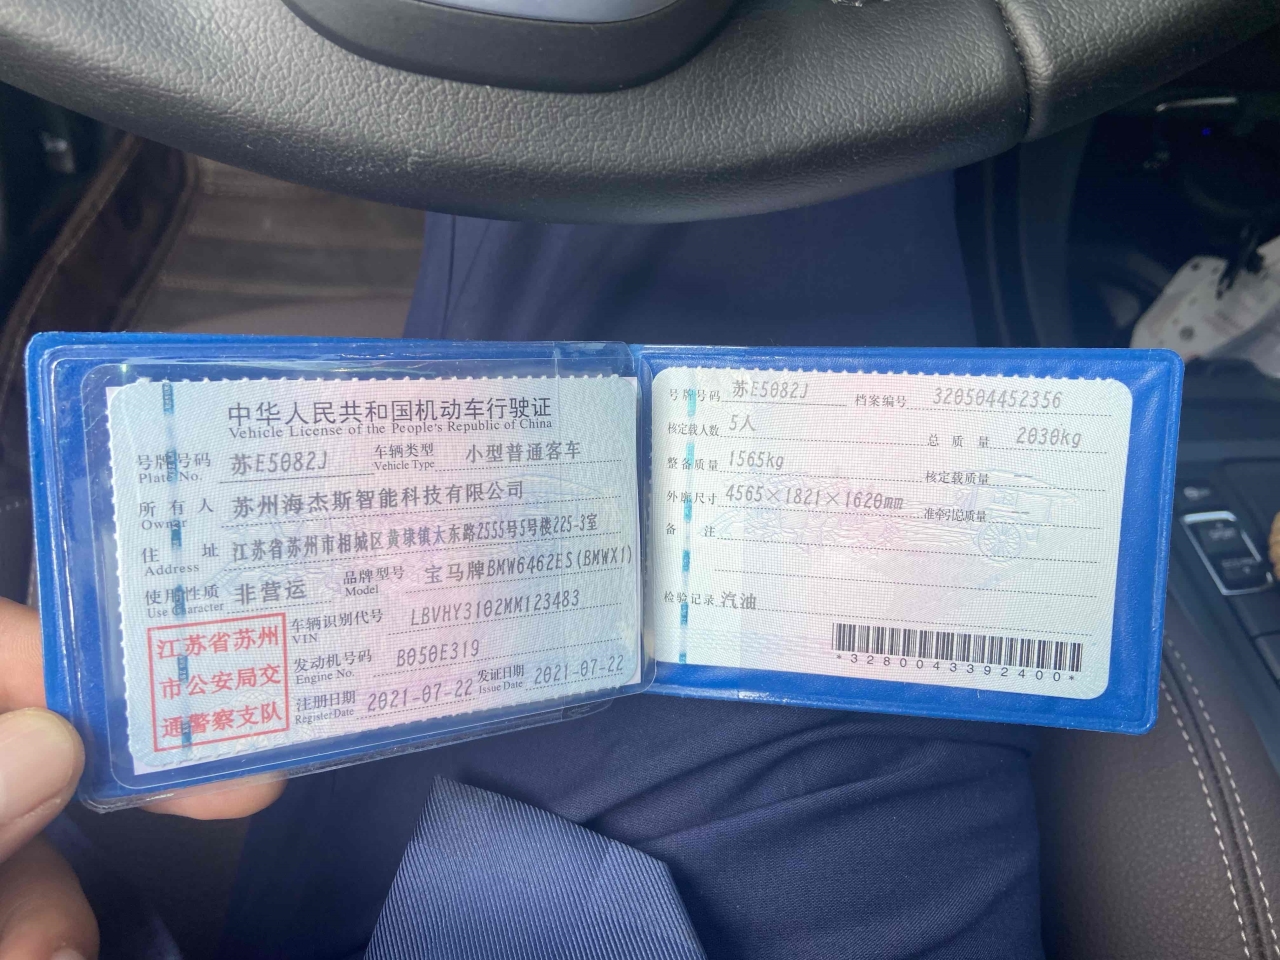 中华人民共和国机动车行驶证
Vehicle License of the People's Republic of China
号牌号码 苏E5082J 车辆类型 小型普通客车
Plate No. Vehicle Type
所有人 苏州海杰斯智能科技有限公司
Owner
住址 江苏省苏州市相城区黄埭镇太东路2555号5号楼225-3室
Address
使用性质 非营运 品牌型号 宝马牌BMW6462ES(BMWX1)
Use Character Model
车辆识别代号 LBVHY3102MM123483
VIN
发动机号码 B050E319
Engine No.
注册日期 2021-07-22 发证日期 2021-07-22
Register Date Issue Date
江苏省苏州
市公安局交
通警察支队
号牌号码 苏E5082J 档案编号 320504452356
核定载人数 5人 总质量 2030kg
整备质量 1565kg 核定载质量 --
外廓尺寸 4565×1821×1620mm 准牵引总质量 --
备注
检验记录 汽油
*3280043392400*